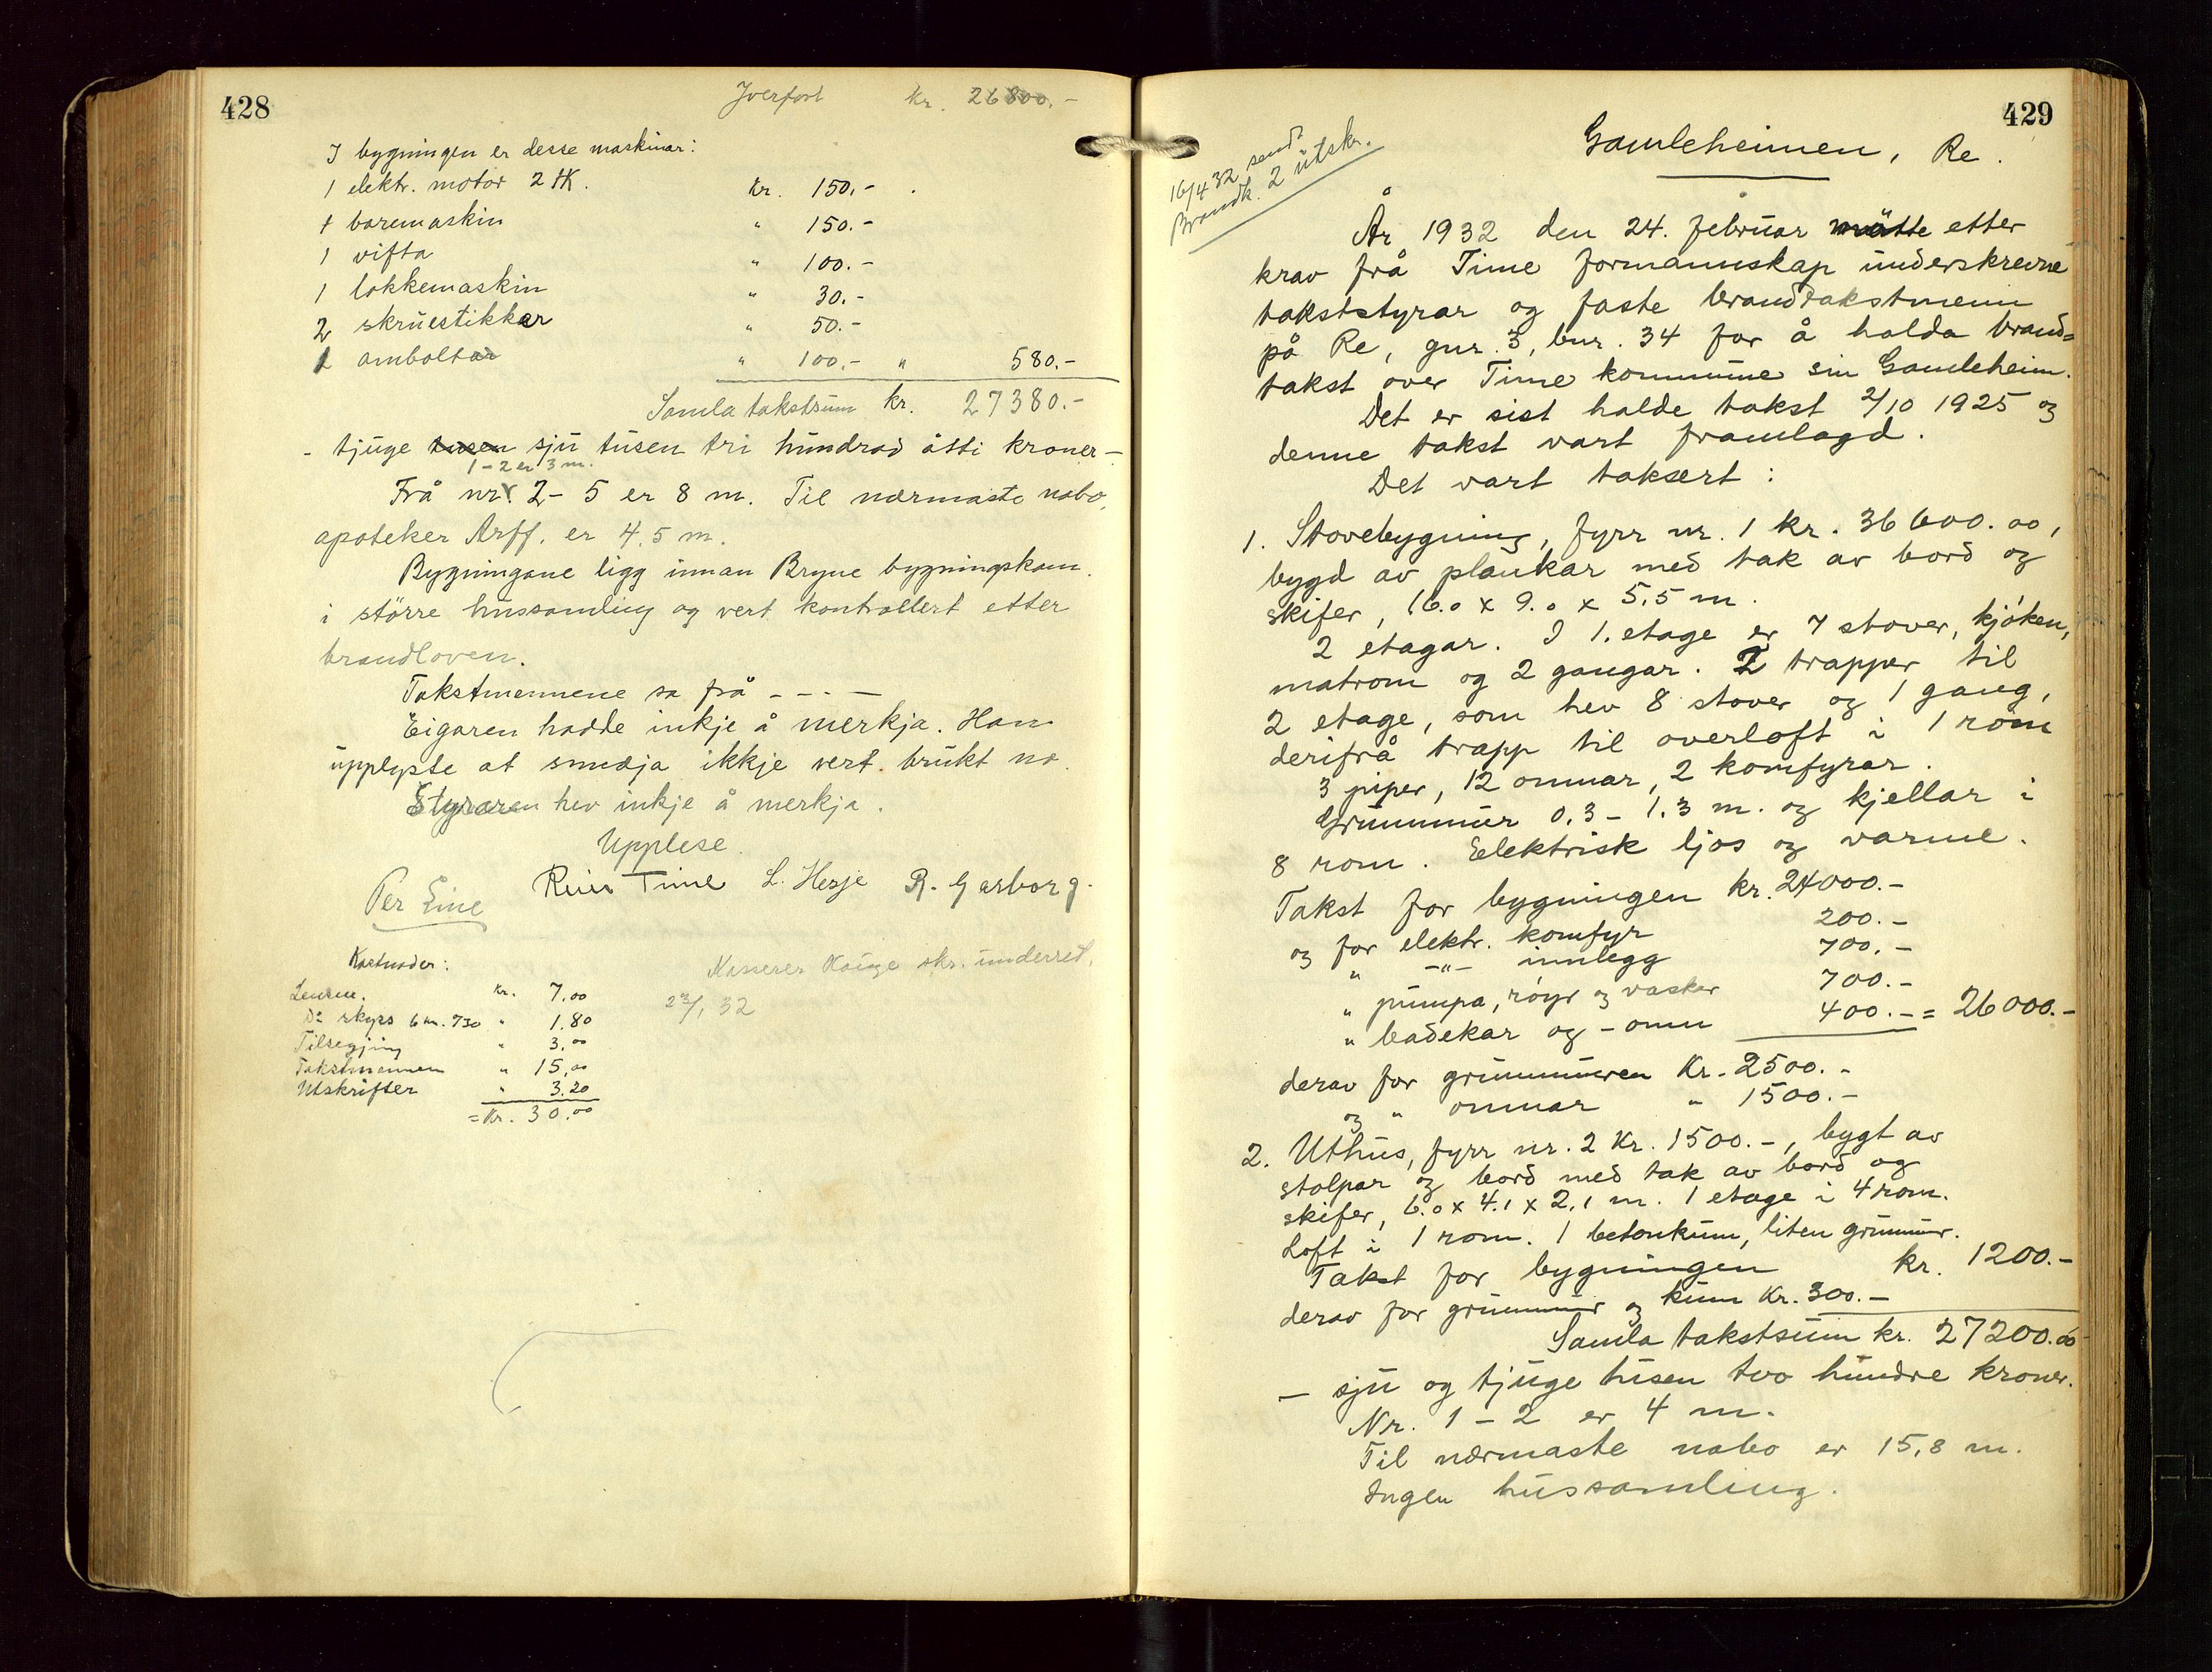 428
Yverført kr. 26800.-
I bygningen er desse maskinar:
1 elektr. motor 2 HK. kr. 150,-
1 boremaskin " 150.-
1 vifta " 100.-
1 lokkemaskin " 30.-
2 skruestikkar " 50.-
2 amboltar " 100.- " 580.-
Samla takstsum kr. 27380.-
- tjuge tusen sju tusen tri hundrad åtti kroner -
1-2 er 3 m.
Frå nr. 2-5 er 8 m. Til nærmaste nabo,
apoteker Arff. er 4,5 m.
Bygningane ligg innan Bryne bygningskom.
i større hussamling og vert kontrollert etter
brandloven.
Takstmennene sa frå - - - -
Eigaren hadde inkje å merkja. Han
upplyste at smedja ikkje vert brukt no.
Styraren hev inkje å merkja.
Upplese.
Per Line Reier Time L. Herje R. Garborg.
Kostnader:
Lensm. kr. 7,00
Do skyss 6 km. 730 " 1,80
Tilsegjing " 3,00
Takstmennen " 15,00
Utskrifter " 3.20
= Kr. 30.00
Kasserer skr. underret.
23/1 32
429
16/4 32 send
Brandk. 2 utskr.
Gamleheimen, Re.
År 1932 den 24. februar møtte etter
krav frå Time formannskap underskrevne
takststyrar og faste brandtakstmenn
på Re, gnr. 3, bnr. 34 for å halda brand-
takst over Time kommune sin Gamleheim.
Det er sist halde takst 2/10 1925 og
denne takst vart framlagd.
Det vart taksert:
1. Stovebygning, fyrr nr. 1 kr. 36600.00,
bygd av plankar med tak av bord og
skifer, 16.0 x 9.0 x 5,5 m.
2 etagar. I 1. etage er 7 stover, kjøken,
matrom og 2 gangar. 2 trapper til
2 etage, som hev 8 stover og 1 gang,
derifrå trapp til overloft i 1 rom
3 piper, 12 omnar, 2 komfyrar.
Grunnmur 0,3 - 1.3 m. og kjellar i
8 rom. Elektrisk ljos og varme.
Takst for bygningen kr. 24000.-
og for elektr. komfyr 200.-
" -"- innlegg 700,-
" pumpa, røyr og vasker 700.-
" badekar og -omn 400.- = 26000.-
derav for grunnmuren Kr. 2500.-
og " omnar " 1500.-
2. Uthus, fyrr nr. 2 Kr. 1500.-, bygt av
stolpar og bord med tak av bord og
skifer, 6.0 x 4.1 x 2,1 m. 1 etage i 4 rom.
Loft i 1 rom. 1 betonkum, liten grunnmur.
Takst for bygningen kr. 1200.-
derav for grunnmur og kum Kr. 300.-
Samla takstsum kr. 27200.00
- sju og tjuge tusen tvo hundre kroner.
Nr. 1-2 er 4 m.
Til nærmaste nabo er 15,8 m.
Ingen hussamling.